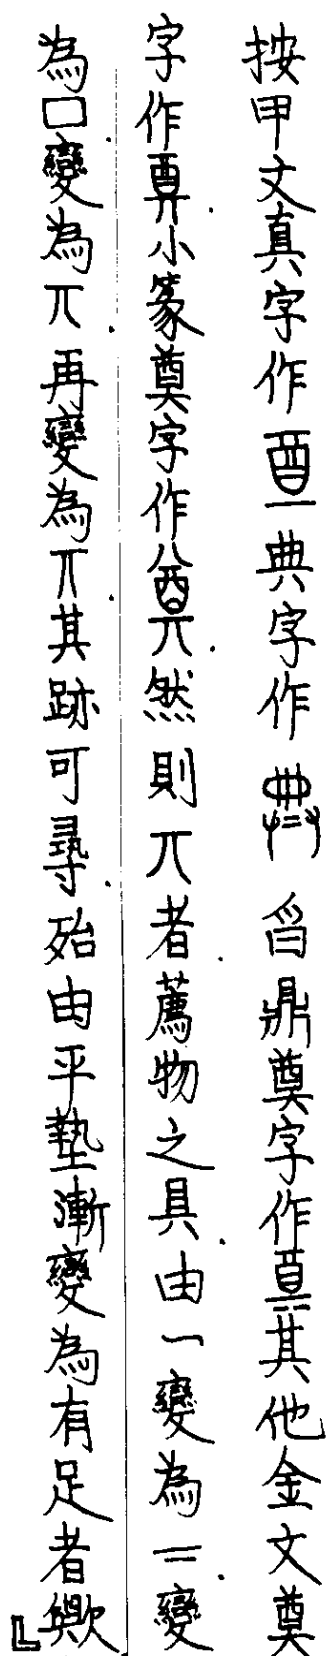 按甲文真字作典字作曶鼎奠字作其他金文奠
字作小篆奠字作然則丌者薦物之具由一變為二變
為口變為丌再變為丌其跡可尋殆由平墊漸變為有足者歟」